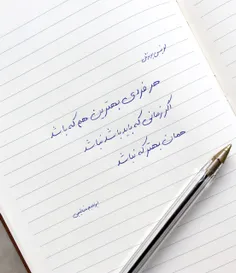 هر فردی بهترین هم که باشد
اگر زمانی که باید باشد نباشد
همان بهتر که نباشد